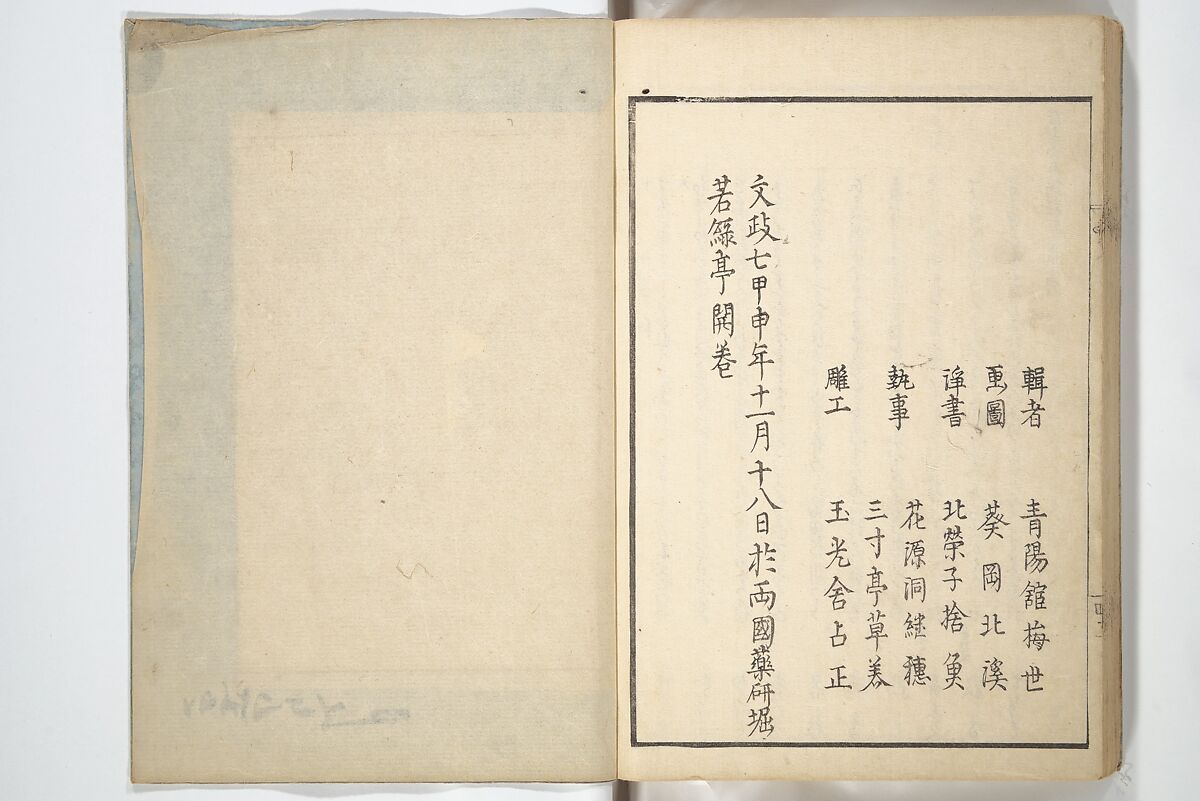 輯者 青陽館梅世
画圖 葵岡北溪
浄書 北榮子捨魚
執事 花源洞継穗
三寸亭草养
雕工 玉光舍占正
文政七甲申年十一月十八日於両國藥研堀
若緑亭開巻